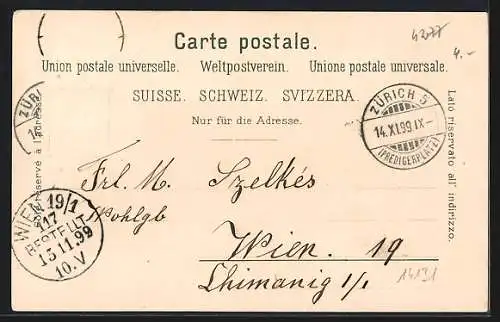 4277
4.-
Carte postale.
Union postale universelle. Weltpostverein. Unione postale universale.
SUISSE. SCHWEIZ. SVIZZERA.
Nur für die Adresse.
Côté réservé à l'adresse.
Lato riservato all' indirizzo.
ZÜR
14
ZÜRICH 5
14.XI.99.IX-
(PREDIGERPLATZ)
WIEN 19/1
117
BESTELLT
15 11.99
10.V
Frl. M. Szelkés
Wohlgb
Wien. 19
1/1
14131